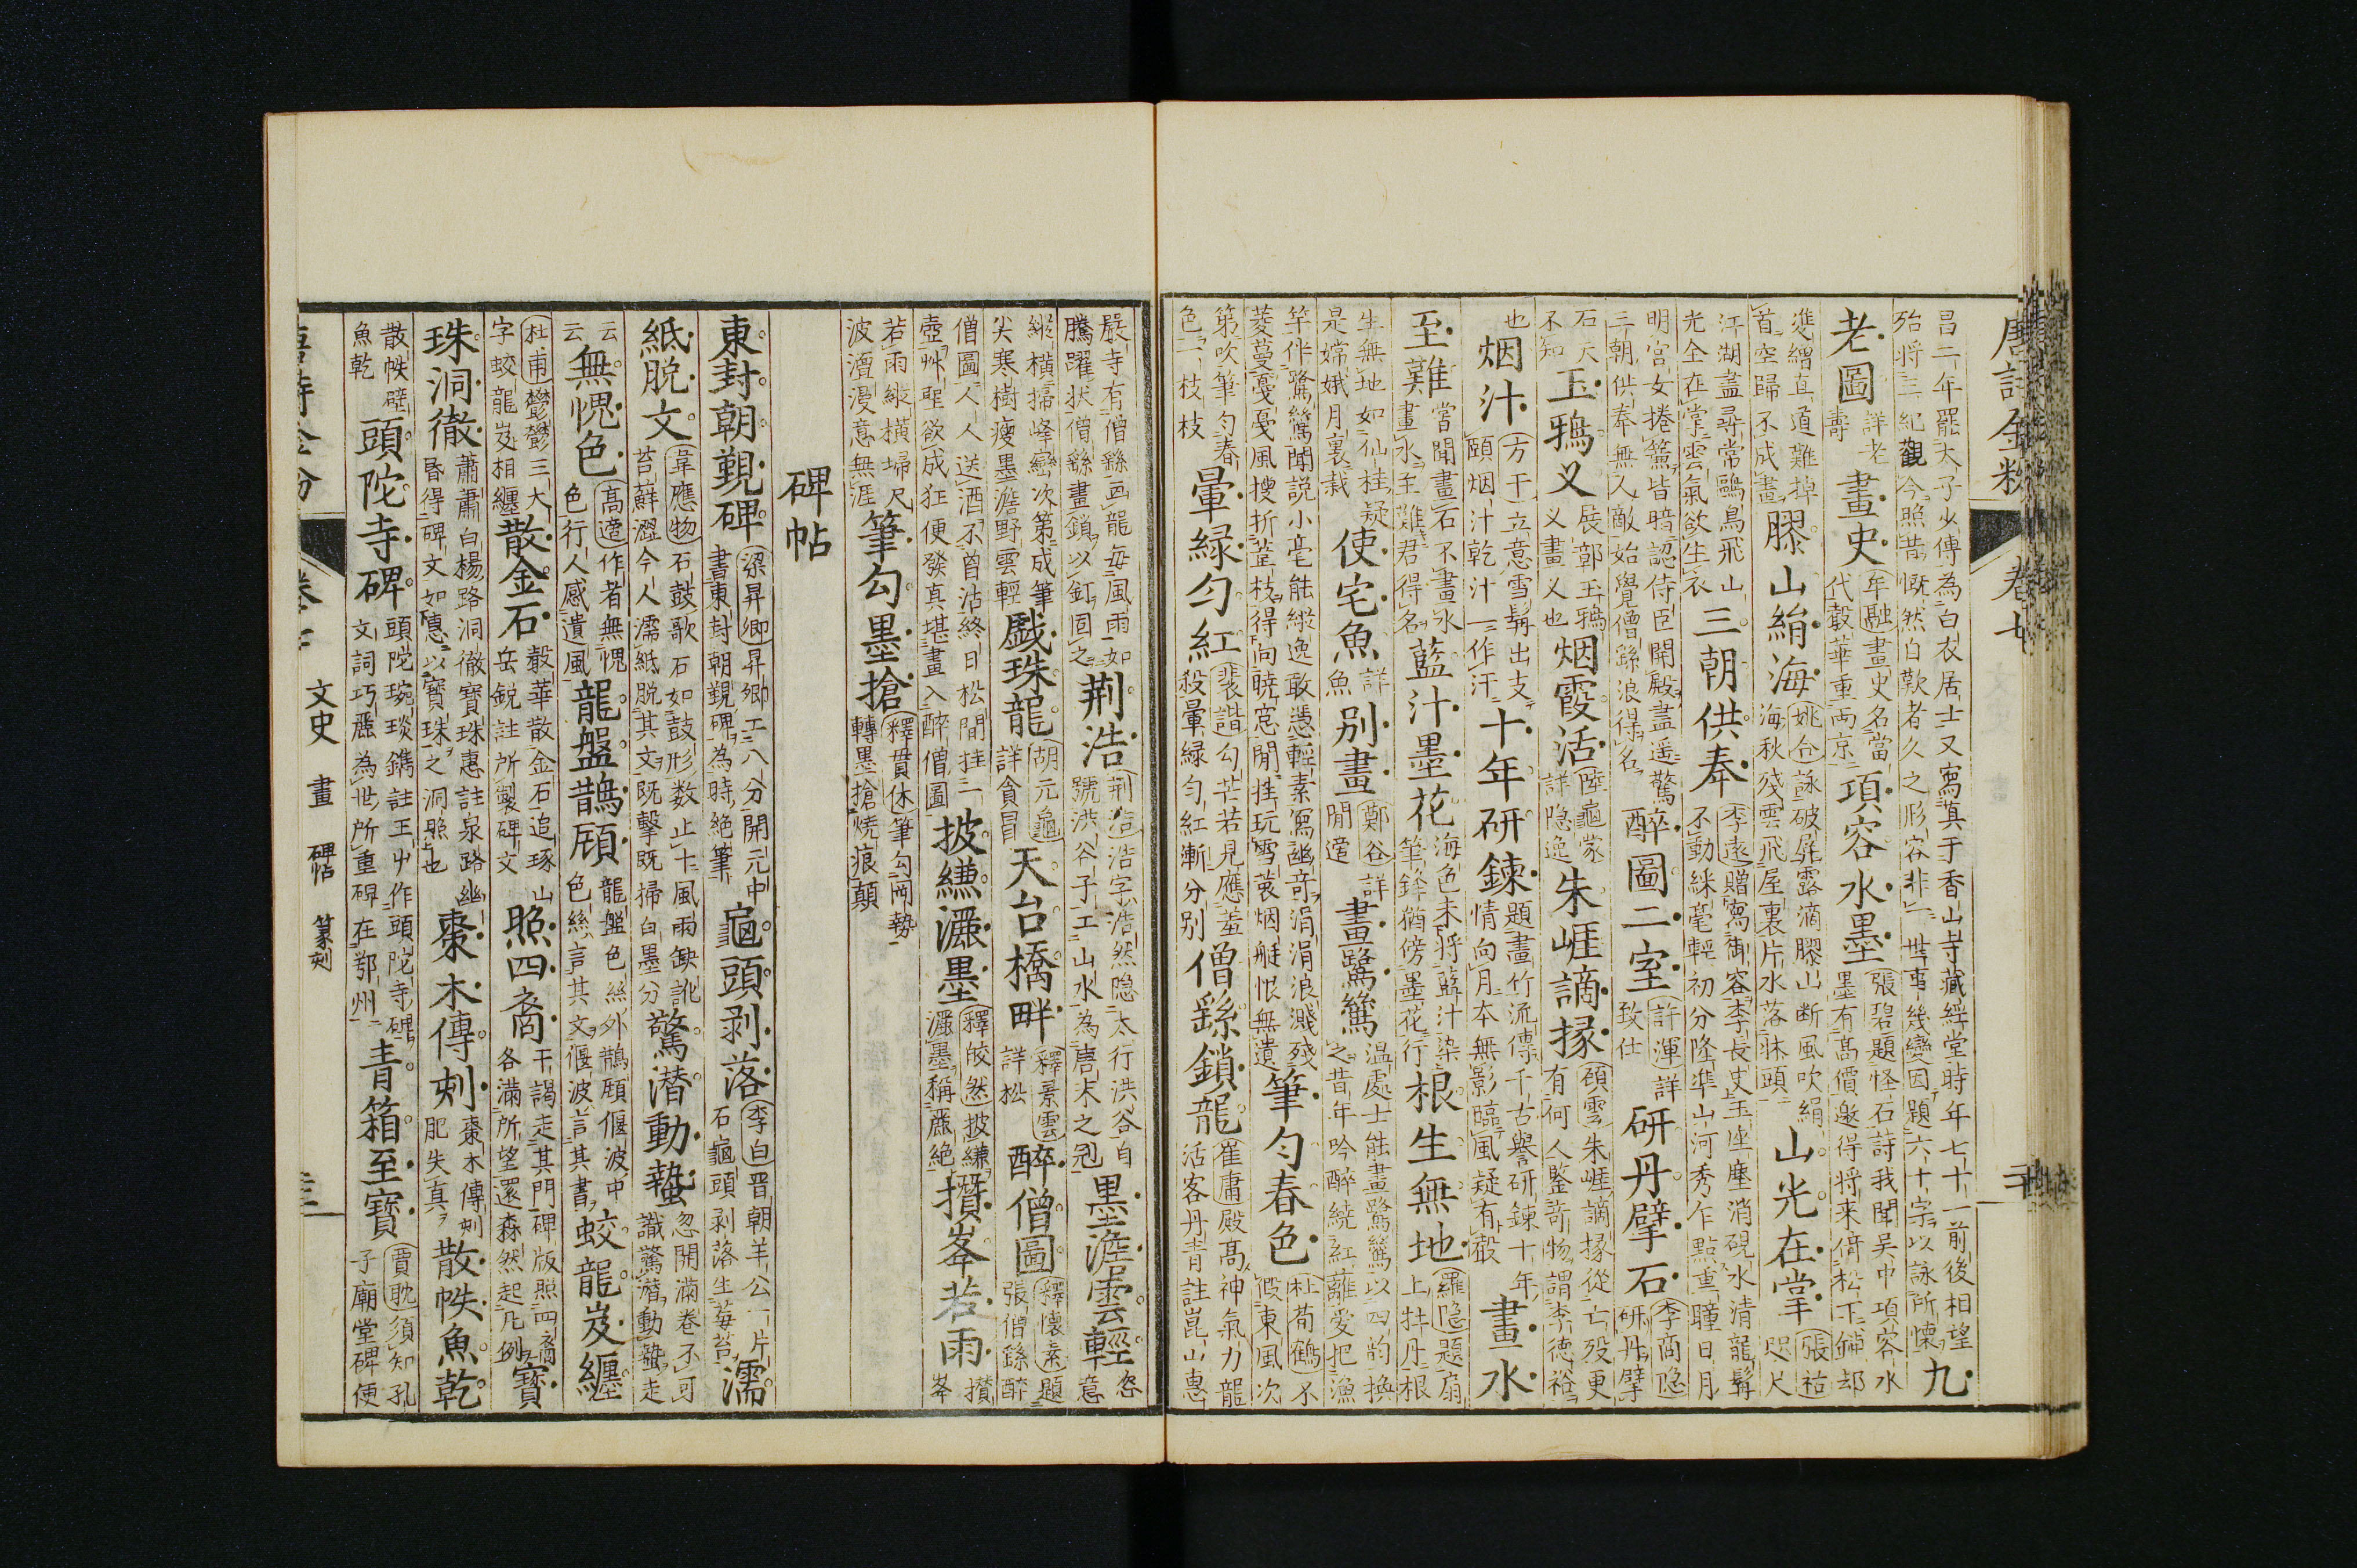 唐詩金粉 卷七
昌二年罷太子少傅為白衣居士又寫真于香山寺藏經堂時年七十一前後相望殆將三紀觀今照昔慨然自歎者久之形容非一世事幾變因題六十字以詠所懷九
老圖詳老壽畫史牟融畫史名當代轂華重兩京項容水墨張碧題怪石詩我聞吳中項容水墨有高價邀得將來倚松下鋪却
雙繒直道難掉首空歸不成畫膠山絹海姚合詠破屏露滴膠山断風吹絹海秋殘雲飛屋裏片水落牀頭山光在掌張祜咫尺
江湖盡尋常鷗鳥飛山光全在掌雲氣欲生衣三朝供奉李遠贈寫御容李長史玉座塵消硯水清龍髯不動綵毫輕初分隆準山河秀乍點重瞳日月
明宮女捲簾皆暗認侍臣開殿盡遥驚三朝供奉無人敵始覺僧繇浪得名醉圖二室許渾詳致仕研丹擘石李商隐研丹擘
石天不知玉鴉义展鄣玉鴉义义畫义也烟霞活陸龜蒙詳隐逸朱崕謫掾碩雲朱崕謫掾從亡殁更有何人鑒奇物謂李德裕
也烟汁方干立意雪髯出支頤烟汁乾汁一作汗十年研鍊題畫竹流傳千古譽研鍊十年情向月本無影臨風疑有聲畫水
至難當聞畫石不畫水畫水至難君得名藍汁墨花海色未將藍汁染筆鋒猶傍墨花行根生無地羅隐題扇上牡丹根
生無地如仙桂疑是嫦娥月裏栽使宅魚詳魚别畫鄭谷詳閒適畫鷺鷥温處士能畫鷺鷥以四韵換之昔年吟醉繞紅蘺愛把漁
竿伴鷺鷥聞説小毫能縱逸敢憑輕素寫幽奇涓涓浪濺殘菱蔓戛戛風搜折葦枝得向曉窓閒挂玩雪蓑烟艇恨無遺筆勻春色杜荀鶴不假東風次
第吹筆勻春色一枝枝暈緑勻紅裴諧勾芒若見應羞殺暈緑勻紅漸分别僧繇鎖龍崔庸殿高神氣力龍活客丹青註崑山惠
嚴寺有僧繇画龍每風雨如騰躍狀僧繇畫鎖以釘固之荆浩荆浩浩字浩然隐太行洪谷自號洪谷子工山水為唐末之冠墨澹雲輕恣意
縱橫掃峰巒次第成筆尖寒樹瘦墨澹野雲輕戲珠龍胡元龜詳貪冒天台橋畔釋景雲詳松醉僧圖釋懷素題張僧繇醉
僧圖人人送酒不曾沽終日松間挂一壺艸聖欲成狂便發真堪畫入醉僧圖披縑灑墨釋皎然披縑灑墨稱麤絶攢峯若雨攢峯
若雨縱橫埽尺波澶漫意無涯筆勾墨搶釋貫休筆勾兩勢轉墨搶燒痕顛
碑帖
東封朝覲碑梁昇卿昇卿工八分開元中書東封朝覲碑為時絶筆龜頭剥落李白晋朝羊公一片石龜頭剥落生莓苔濡
紙脱文韋應物石鼓歌石如鼓形数止十風雨缺訛苔蘚澀今人濡紙脱其文既擊既掃白墨分驚潜動蟄忽開滿卷不可識驚潜動蟄走
云云無愧色高適作者無愧色行人感遺風龍盤鵲顧龍盤色絲外鵲顧偃波中色絲言其文偃波言其書蛟龍岌纒
杜甫鬱鬱三大字蛟龍岌相纒散金石聲華散金石追琢山岳鋭註所製碑文照四裔干謁走其門碑版照四裔各滿所望還森然起凡例寶
珠洞徹蕭蕭白楊路洞徹寶珠惠註泉路幽昏得碑文如惠以寶珠之洞照也棗木傳刻棗木傳刻肥失真散帙魚乾
散帙壁魚乾頭陀寺碑頭陀琬琰鐫註王屮作頭陀寺碑文詞巧麗為世所重碑在鄂州青箱至寶賈耽須知孔子廟堂碑便
文史 畫 碑帖 篆刻